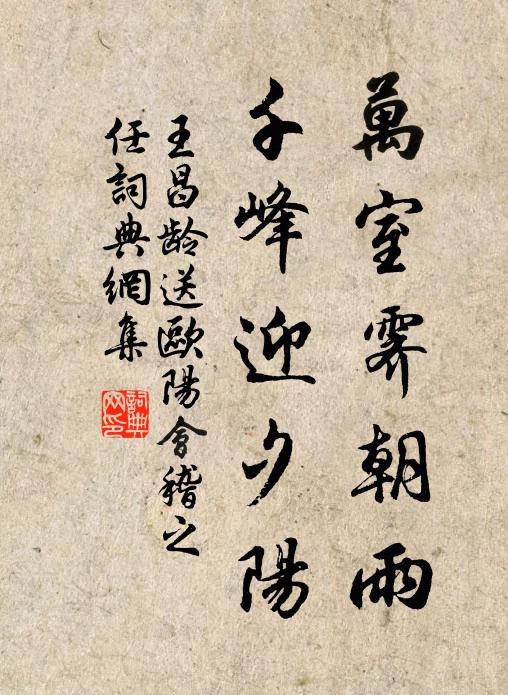 萬室霽朝雨
千峰迎夕陽
王昌龄送歐陽會稽之
任詞典網集
詞典
网印